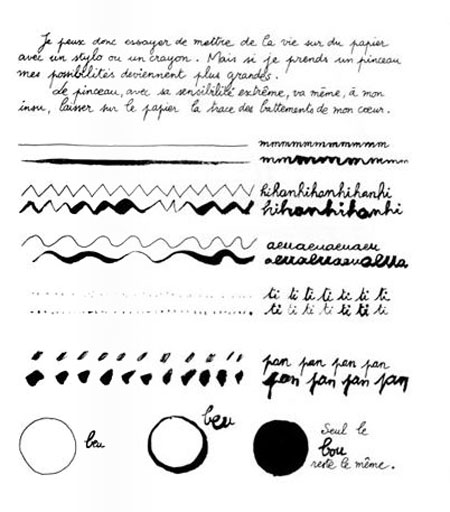 Je peux donc essayer de mettre de la vie sur du papier
avec un stylo ou un crayon. Mais si je prends un pinceau
mes possibilités deviennent plus grandes.
Le pinceau, avec sa sensibilité extrême, va même, à mon
insu, laisser sur le papier la trace des battements de mon cœur.
mmmmmmmmmmmm
mmmmmmmmmm
hihanhihanhihanhi
hihanhihanhi
aeuaeuaeuaeu
aeuaeuaeuaeua
ti ti ti ti ti ti ti
ti ti ti ti ti ti ti
pan pan pan pan
pan pan pan pan
beu
beu
Seul le
bou
reste le même.